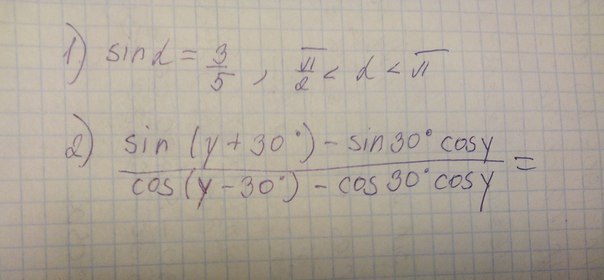 1) sin α = 3/5 , π/2 < α < π
2) (sin (y + 30°) - sin 30° cos y) / (cos (y - 30°) - cos 30° cos y) =